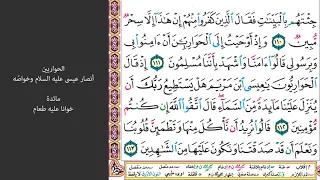 جِئْتَهُم بِالْبَيِّنَاتِ فَقَالَ الَّذِينَ كَفَرُوا مِنْهُمْ إِنْ هَٰذَا إِلَّا سِحْرٌ
مُّبِينٌ ١١٠ وَإِذْ أَوْحَيْتُ إِلَى الْحَوَارِيِّينَ أَنْ آمِنُوا بِي
وَبِرَسُولِي قَالُوا آمَنَّا وَاشْهَدْ بِأَنَّنَا مُسْلِمُونَ ١١١ إِذْ قَالَ
الْحَوَارِيُّونَ يَا عِيسَى ابْنَ مَرْيَمَ هَلْ يَسْتَطِيعُ رَبُّكَ أَن
يُنَزِّلَ عَلَيْنَا مَائِدَةً مِّنَ السَّمَاءِ قَالَ اتَّقُوا اللَّهَ إِن كُنتُم
مُّؤْمِنِينَ ١١٢ قَالُوا نُرِيدُ أَن نَّأْكُلَ مِنْهَا وَتَطْمَئِنَّ قُلُوبُنَا
وَنَعْلَمَ أَن قَدْ صَدَقْتَنَا وَنَكُونَ عَلَيْهَا مِنَ الشَّاهِدِينَ ١١٣
الحواريين
أنصار عيسى عليه السلام وخواصّه
مائدة
خوانا عليه طعام